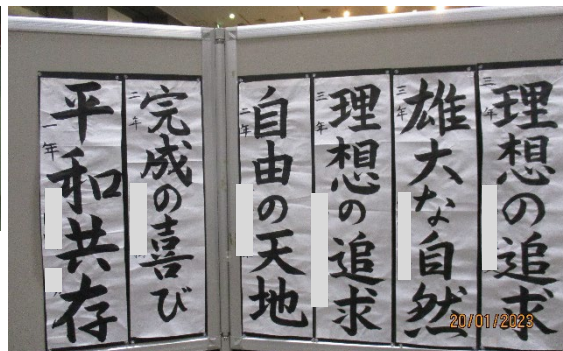 理想の追求
三年
雄大な自然
三年
理想の追求
三年
自由の天地
二年
完成の喜び
二年
平和共存
一年
20/01/2023